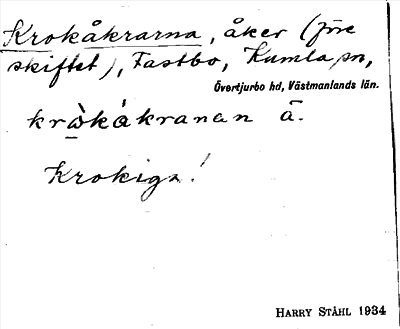 Krokåkrarna, åker (före
skiftet), Fastbo, Kumla sn,
Övertjurbo hd, Västmanlands län.
kråkåkranan ā.
Krokiga!
HARRY STÅHL 1934